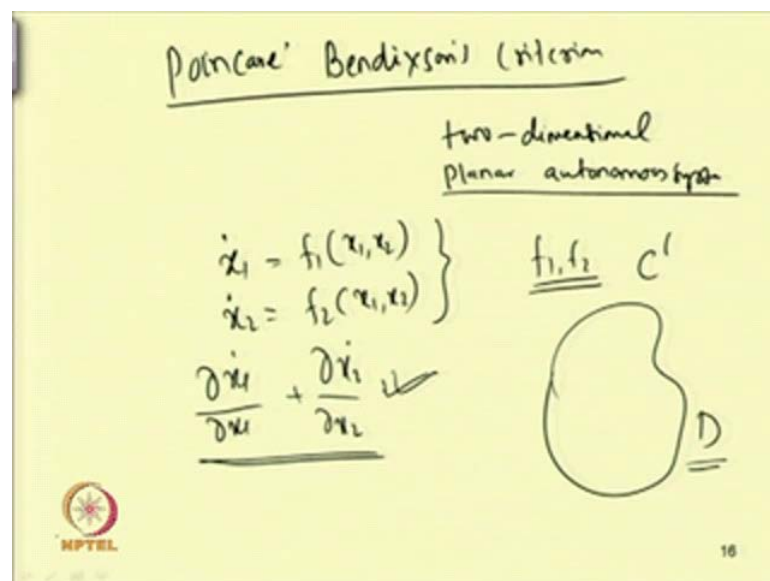 Poincare' Bendixson's Criterion
two-dimentional
planar autonomous system
ẋ₁ = f₁(x₁,x₂) } f₁,f₂ C'
ẋ₂ = f₂(x₁,x₂)
∂ẋ₁/∂x₁ + ∂ẋ₂/∂x₂
D
NPTEL
16